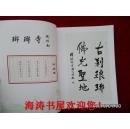 瑯琊寺
古刹琅琊
佛光聖地
海涛书屋欢迎您